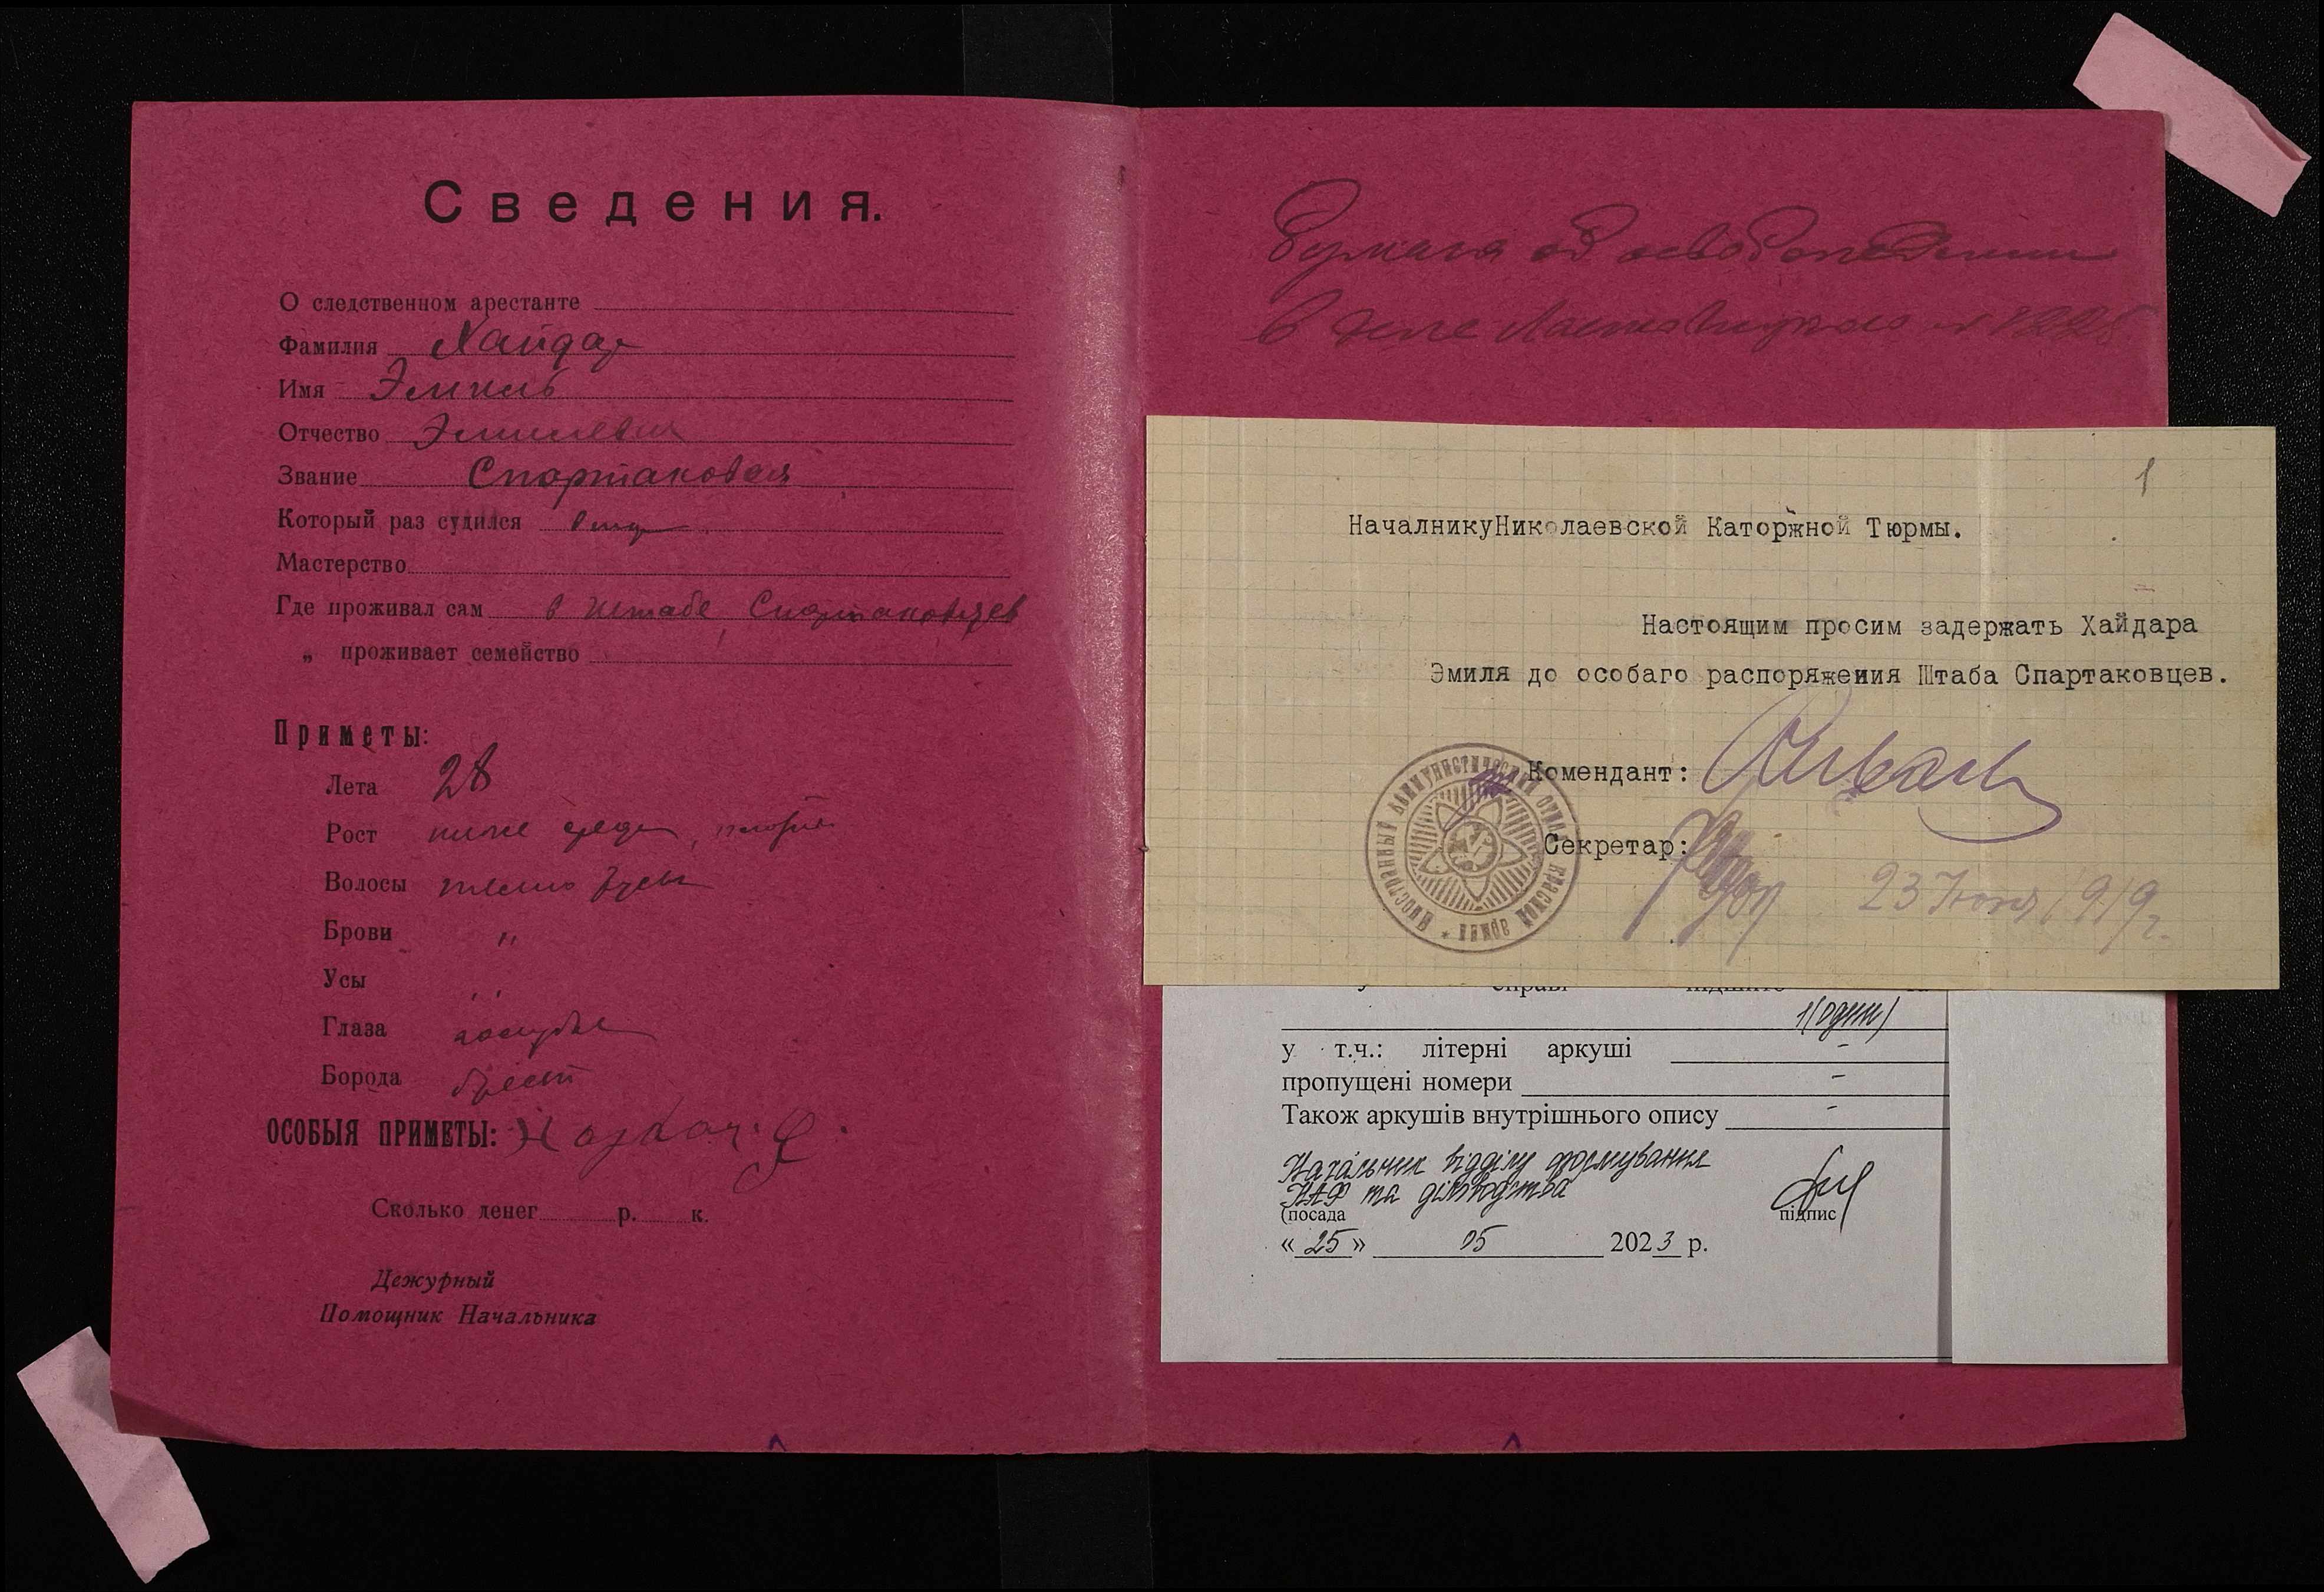 Сведения.
О следственном арестанте
Фамилия Хайдар
Имя Эмиль
Отчество Эмилевич
Звание Спартаковец
Который раз судился
Мастерство
Где проживал сам в штабе Спартаковцев
„ проживает семейство
Приметы:
Лета 28
Рост ниже средн
Волосы темно русы
Брови "
Усы
Глаза голубые
Борода бреет
ОСОБЫЯ ПРИМЕТЫ:
Сколько денег р. к.
Дежурный
Помощник Начальника
Бумага об освобождении
в деле №
1
НачалникуНиколаевской Каторжной Тюрмы.
Настоящим просим задержать Хайдара
Эмиля до особаго распоряжения Штаба Спартаковцев.
Комендант:
Секретар:
23 Июня 1919г.
Красной армии *
1(один)
у т.ч.: літерні аркуші -
пропущені номери -
Також аркушів внутрішнього опису -
Начальник відділу формування
НАФ та діловодства
(посада підпис
« 25 » 05 2023 р.